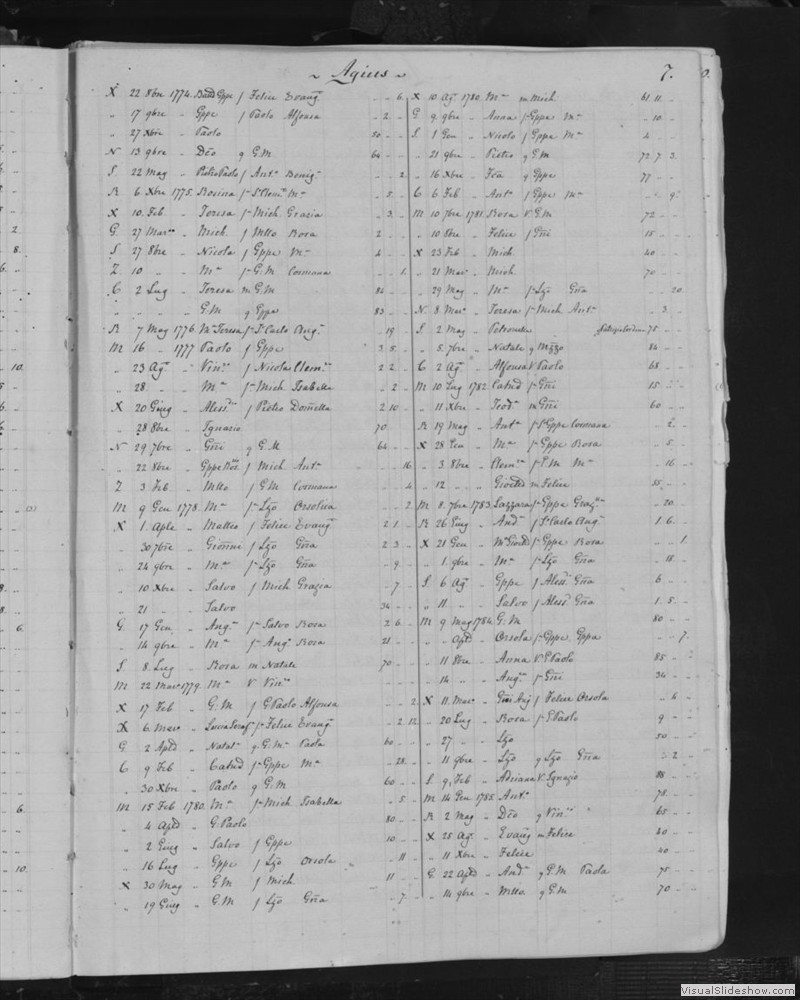 ~ Agius ~ 7.
X 22 8bre 1774. Gppe f Felice Evang
„ 17 9bre „ Gppe f Paolo Alfonsa 2
„ 27 Xbre „ Paolo 50
N 13 9bre „ Dẽo q G.M 60
S 22 Mag „ PietroPaolo f Ant.ª Benig.ª 2
R 6 Xbre 1775. Rosina 5
X 10 Feb. „ Teresa f Mich Grazia 3
G 27 Mar „ Mich f Mtto Rosa 2
S 27 8bre „ Nicola f Gppe M.ª 4
Z 10 „ „ M.ª f G.M Cosmana 1
C 2 Lug „ Teresa m G.M 84
„ „ „ G.M q Gppa 83
R 7 Mag 1776 M.ª Teresa f Carlo Aug.ª 19
M 16 „ 1777 Paolo f Gppe 3 5
„ 23 Ag „ Vin f Nicola Clem 2 2
„ 28 „ „ M.ª f Mich Isabella 2
X 20 Giug „ Aless f Pietro Domella 2 10
„ 28 8bre „ Ignazio 70
N 29 7bre „ Gnni q G.M 64
„ 22 8bre „ Gppe f Mich Ant.ª 16
Z 3 Feb „ Mtto f G.M Cosmana 4
M 9 Gen 1778 M.ª f Lzo Orsolica 2
X 1 Aple „ Matteo f Felice Evang 2 1
„ 30 7bre „ Gionne f Lzo Gña 2 3
„ 24 9bre „ M.ª f Lzo Gña 9
„ 10 Xbre „ Salvo f Mich Grazia 7
„ 21 „ „ Salvo 34
G 17 Gen „ Ang.ª f Salvo Rosa 2 6
„ 14 9bre „ M.ª f Ang. Rosa 21
S 8 Lug „ Rosa m Natale 70
M 22 Mar 1779. M.ª V Vin
X 17 Feb „ G.M f G.Paolo Alfonsa 2
X 6 Mar „ f Felice Evang 2 12
G 2 Aple „ Natal q G.M.ª Paola 60
C 9 Feb „ Catnd f Gppe M.ª 28
„ 30 Xbre „ Paolo q G.M 60
M 15 Feb 1780. M.ª f Mich Isabella 5
„ 4 Aple „ G.Paolo 80
„ 2 Giug „ Salvo f Gppe 10
„ 16 Lug „ Gppe f Lzo Orsola 11
X 30 Mag „ GM f Mich 11
„ 19 Giug „ G.M f Lzo Gña 7
X 10 Ag 1780. M.ª m Mich 61 11
G 9 9bre „ Anna f Gppe M.ª 10
S 1 Gen „ Nicolo f Gppe M.ª 4
„ 21 9bre „ Pietro q G.M 72 7 3
„ 16 Xbre „ Fca q Gppe 77
C 6 Feb „ Ant.ª f Gppe M.ª 9
M 10 7bre 1781. Rosa V G.M 72
„ 10 8bre „ Felice f Gnni 15
X 23 Feb „ Mich 40
„ 21 Mar „ Mich 70
„ 29 Mag „ M.ª f Lzo Gña 20
N 8 Mar „ Teresa f Mich Ant.ª 3
S 2 Mag „ Petronila 75
„ 5 7bre „ Natale q Mzzo 84
C 2 Ag „ Alfonsa V Paolo 68
M 10 Lug 1782. Catnd f Gnni 15
„ 11 Xbre „ Teod.ª m Gnni 60
R 19 Mag „ Ant.ª f Gppe Cosmana 2
X 28 Gen „ M.ª f Gppe Rosa 5
„ 3 8bre „ Clem.ª f P.M M.ª 16
„ 12 „ „ m Felice 55
M 8 7bre 1783. Lazzara f Gppe Graz 20
R 26 Giug „ And f Carlo Aug 1 6
X 21 Gen „ f Gppe Rosa 1
„ 1 9bre „ M.ª f Lzo Gña 18
S 6 Ag „ Gppe f Aless Gña 6
„ 11 „ „ Salvo f Aless Gña 1 5
M 9 Mag 1784. G.M 80
„ „ Aple „ Orsola f Gppe Gppa 7
„ 11 8bre „ Anna V P.Paolo 85
„ 14 „ „ Ang.ª f Gnni 34
X 11 Mar „ f Felice Orsola 6
„ 20 Lug „ Rosa f P.Paolo 9
„ 27 „ „ Lzo 50
„ 11 9bre „ Lzo q Lzo Gña 2
S 9 Feb „ Adriana V Ignazio 88
M 14 Gen 1785. Ant.ª 78
R 2 Mag „ Dẽo q Vin 65
X 25 Ag „ Evang m Felice 40
„ 11 Xbre „ Felice 40
G 22 Aple „ And q G.M Paola 75
„ 14 9bre „ Mtto q G.M 70